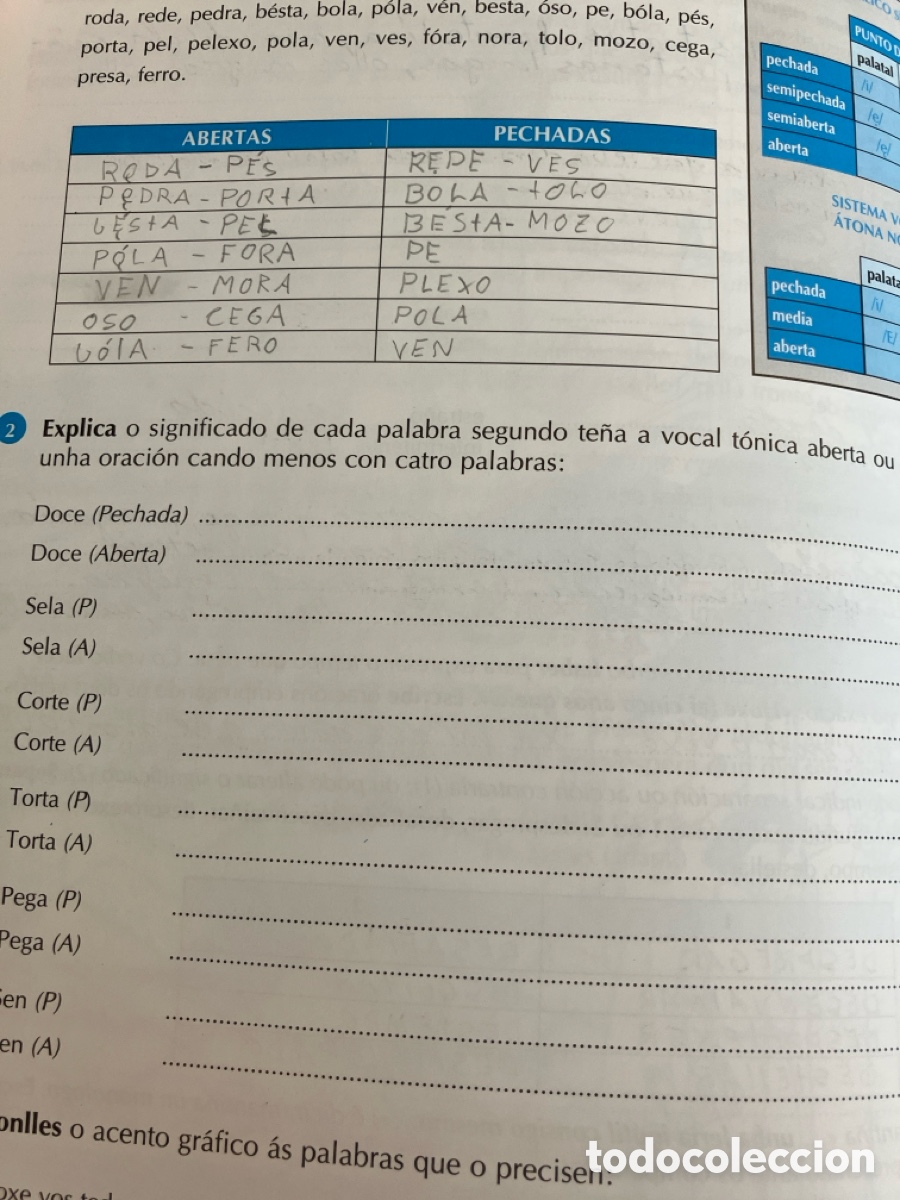 roda, rede, pedra, bésta, bola, póla, vén, besta, óso, pe, bóla, pés,
porta, pel, pelexo, pola, ven, ves, fóra, nora, tolo, mozo, cega,
presa, ferro.
PUNTO D
palatal
pechada /i/
semipechada /e/
semiaberta /ę/
aberta
SISTEMA V
ÁTONA NO
palata
pechada /i/
media /E/
aberta
ABERTAS PECHADAS
RODA - PÉS REDE - VES
PEDRA - PORTA BOLA - tOLO
bÉStA - PEL BÉStA - MOZO
PÓLA - FORA PE
VEN - MORA PLEXO
OSO - CEGA POLA
bólA - FERO VEN
2 Explica o significado de cada palabra segundo teña a vocal tónica aberta ou
unha oración cando menos con catro palabras:
Doce (Pechada)
Doce (Aberta)
Sela (P)
Sela (A)
Corte (P)
Corte (A)
Torta (P)
Torta (A)
Pega (P)
Pega (A)
Sen (P)
en (A)
onlles o acento gráfico ás palabras que o precisen:
todocoleccion